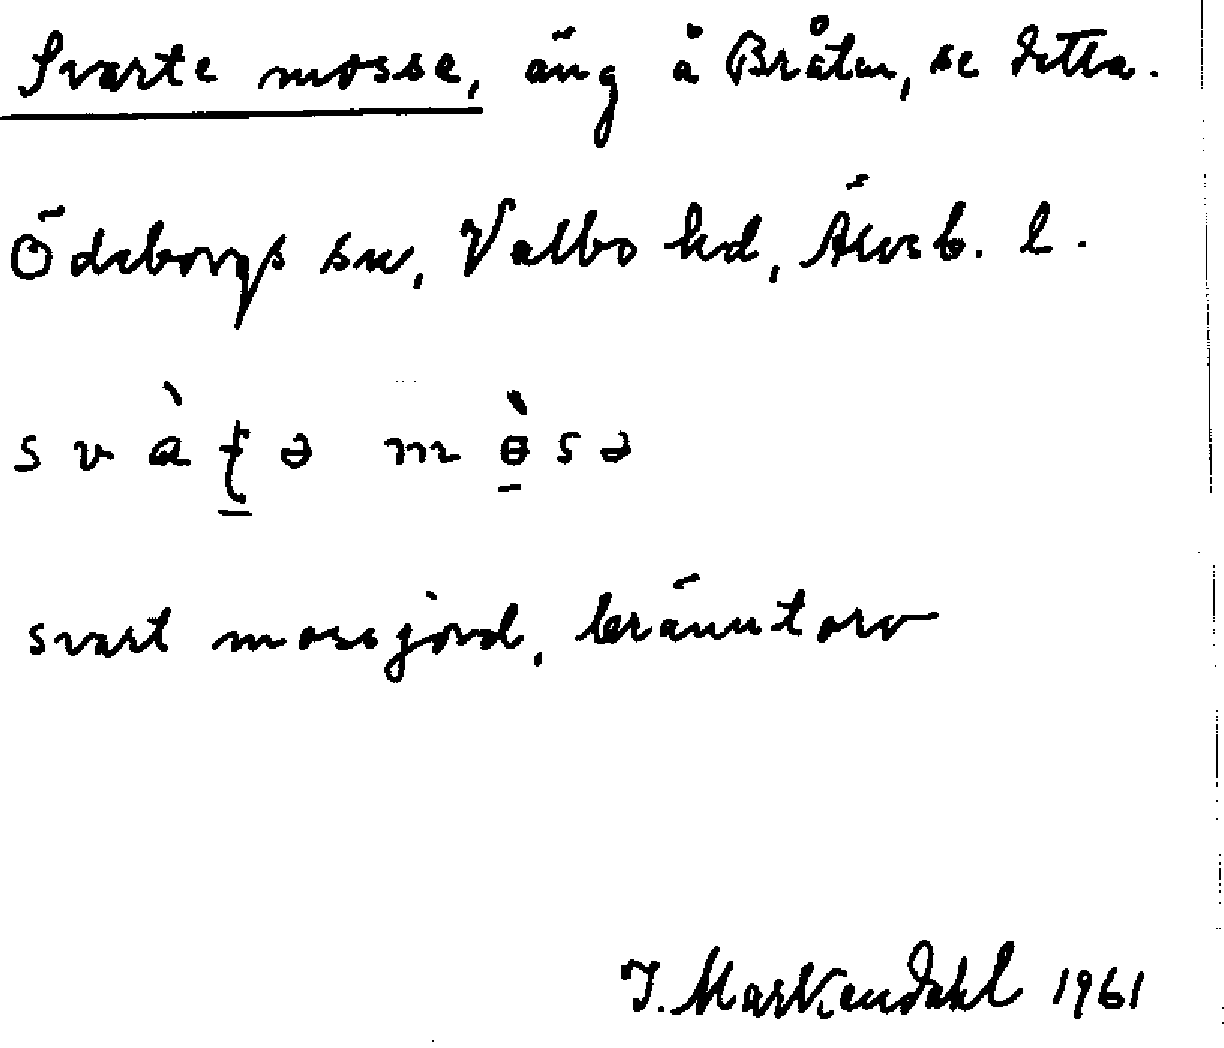 Svarte mosse, äng å Bråten, se detta.
Ödeborgs sn, Valbo hd, Älvsb. l.
svàʈə mɵ̀sə
svart mossjord, bränntorv
I. Markendahl 1961